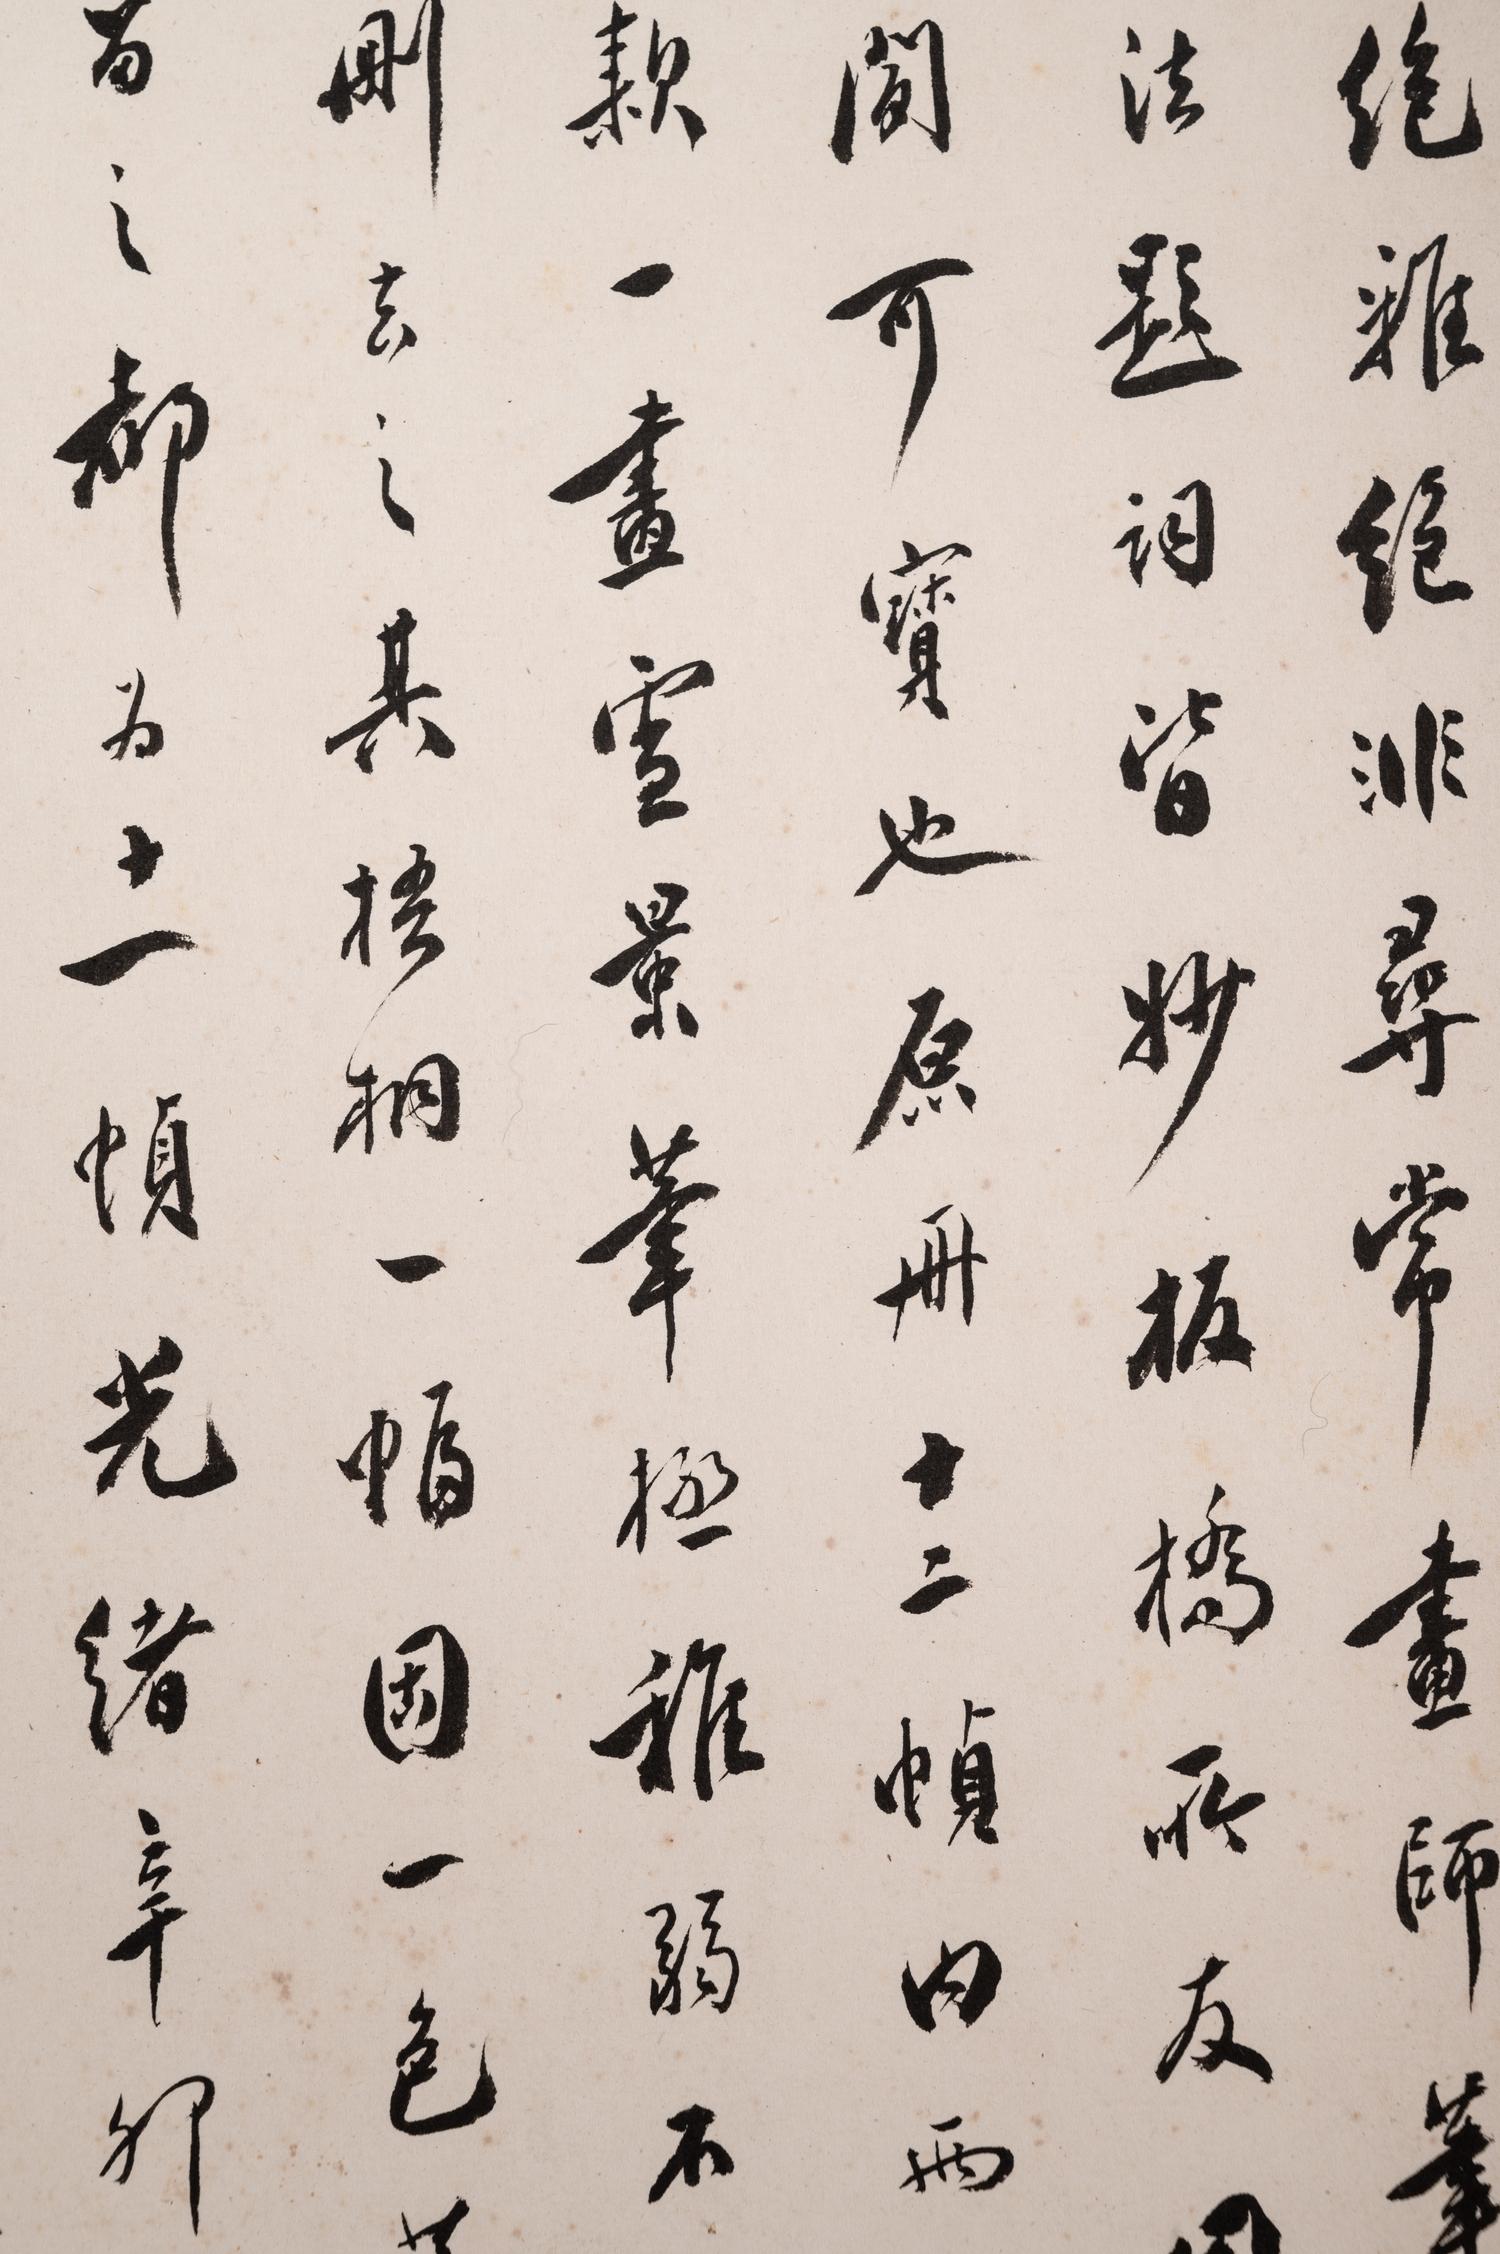 絕雜絕非尋常畫師筆
法題詞皆妙板橋所友
閒可寶也原冊十二幀內兩
款一畫雪景筆極稚弱不
刪去之其梧桐一幅固一色
留之都為十一幀光緒辛卯